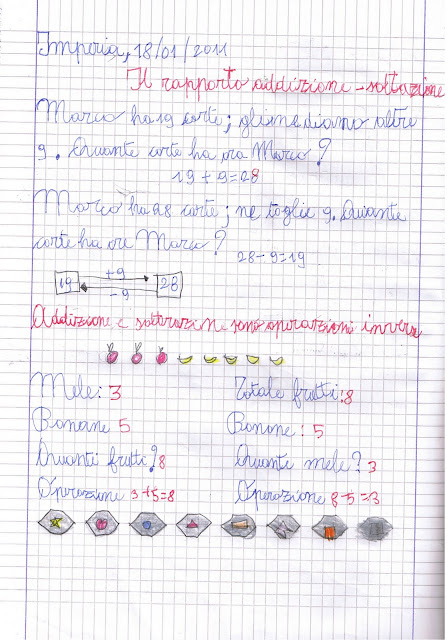 Imperia, 18/01/2011
Il rapporto addizione - sottrazione
Marco ha 19 carte; gliene diamo altre
9. Quante carte ha ora Marco?
19 + 9 = 28
Marco ha 28 carte; ne toglie 9. Quante
carte ha ora Marco?
28 - 9 = 19
+9
19 28
- 9
Addizione e sottrazione sono operazioni inverse
Mele: 3 Totale frutti: 8
Banane 5 Banane: 5
Quanti frutti? 8 Quante mele? 3
Operazione 3+5=8 Operazione 8-5=3